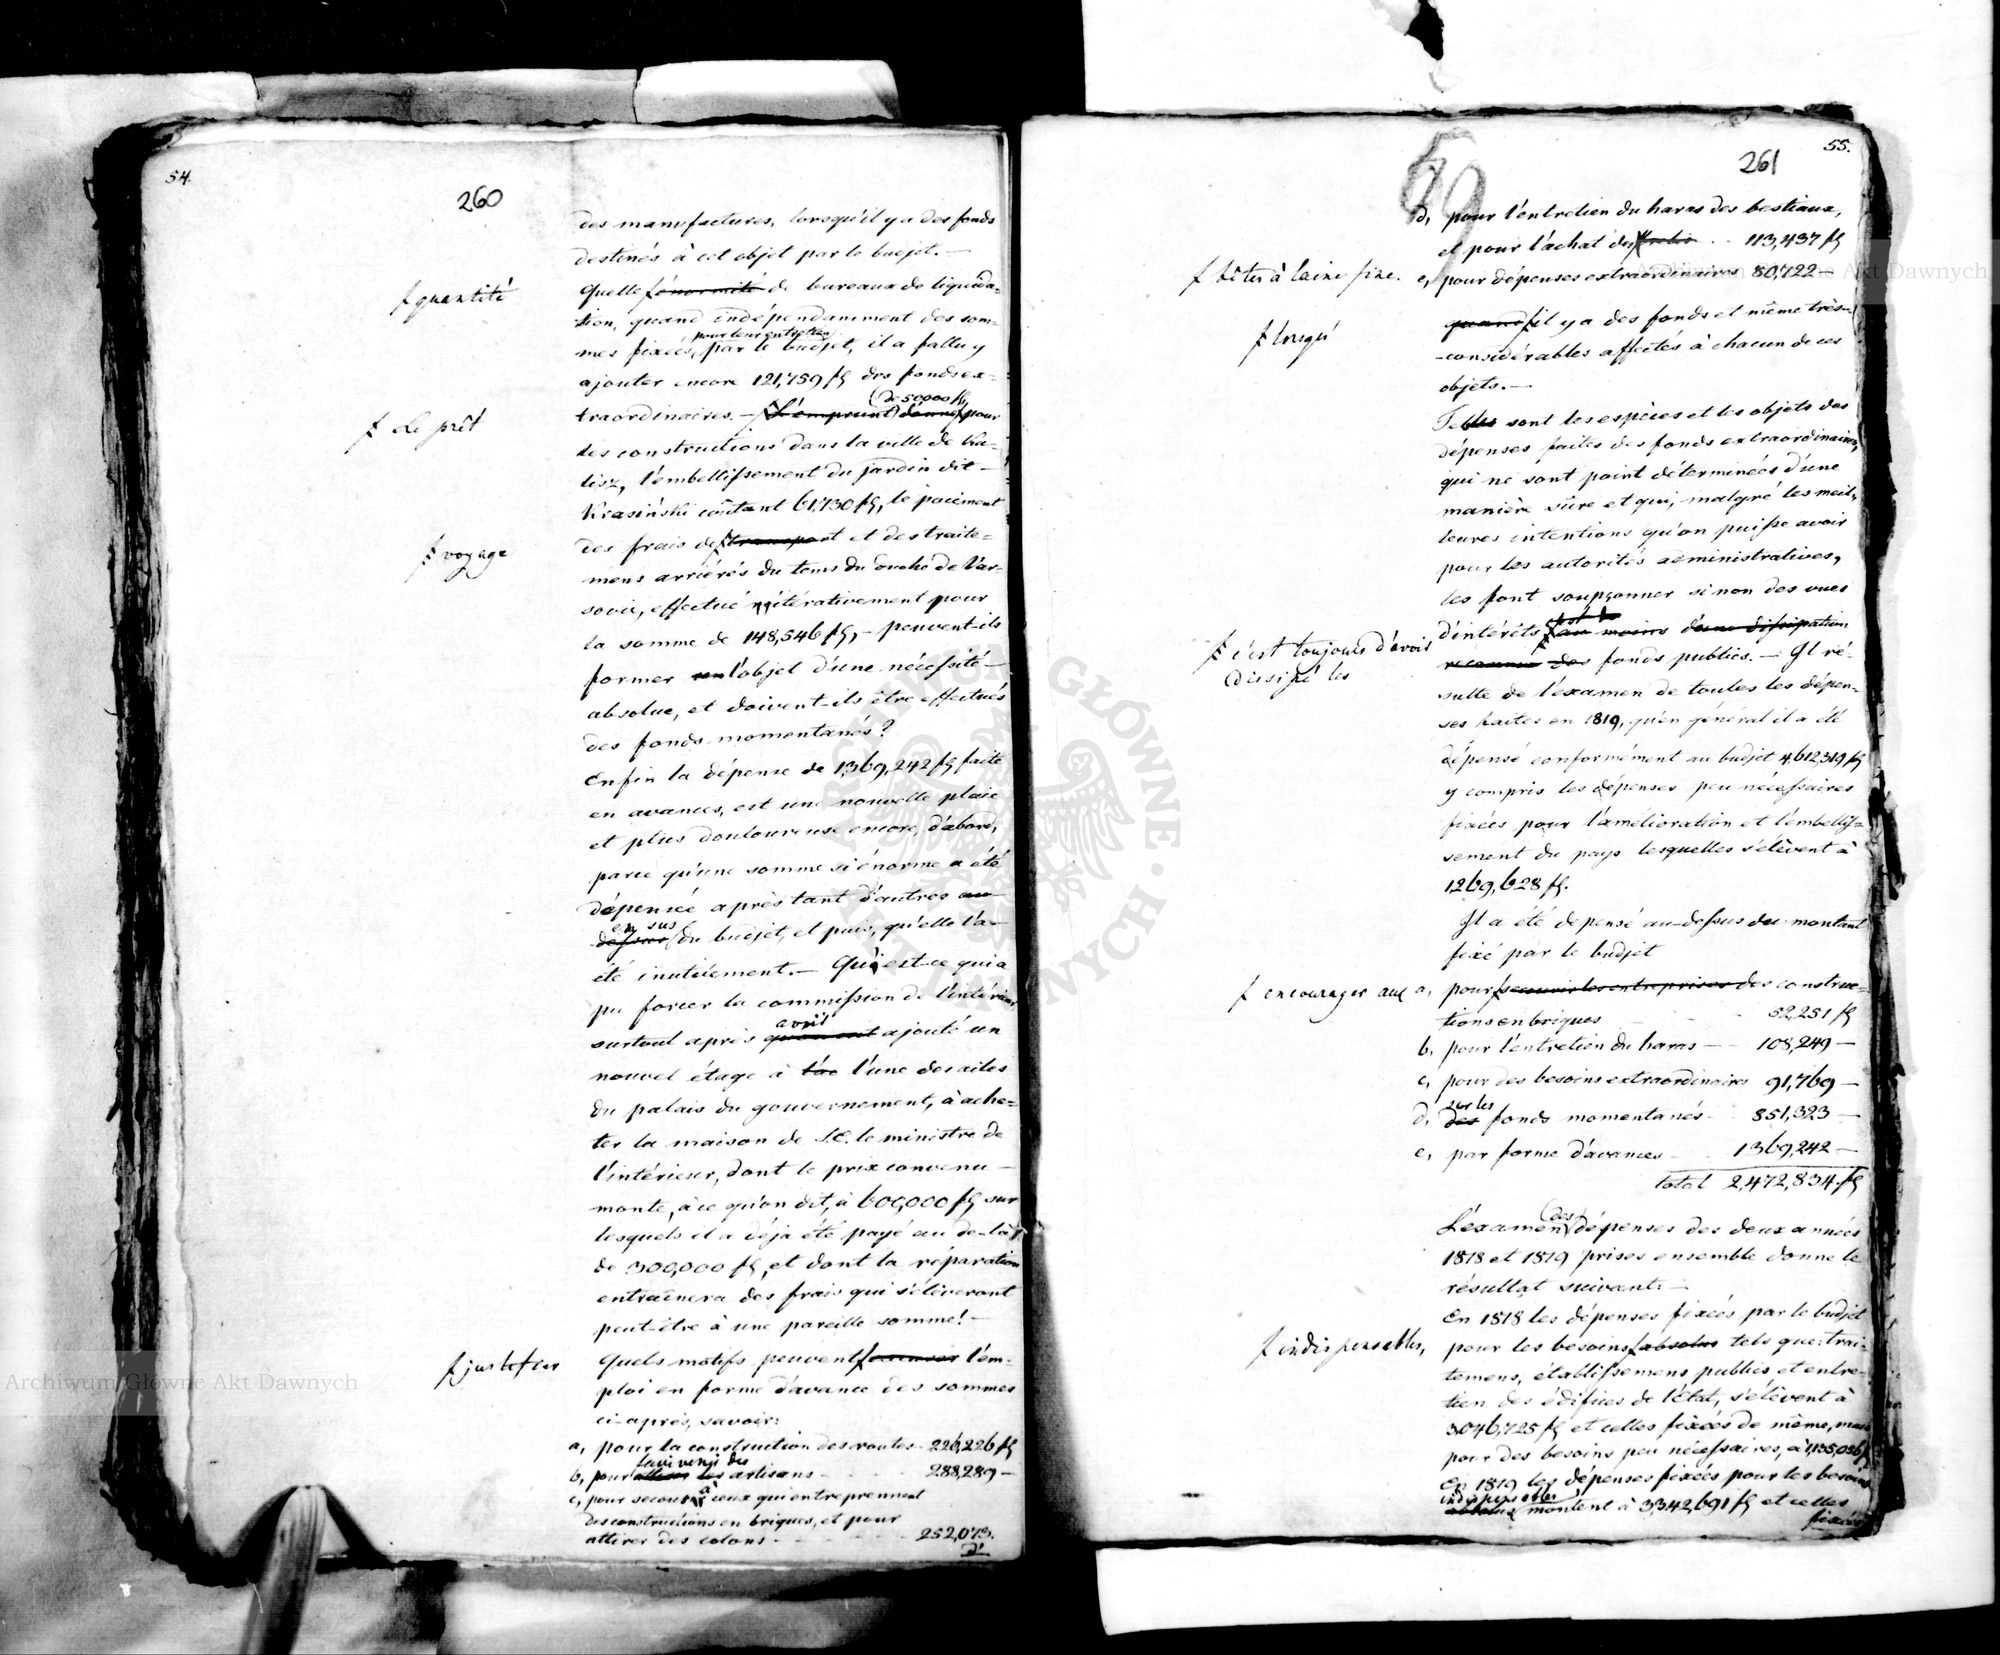 54.
260
des manufactures, lorsqu'il y a des fonds
destinés à cet objet par le budjet. —
ƒ quantité
Quelle ƒ énormité de bureaux de liquida=
tion, quand indépendamment des som=
pour leur entretien
mes fixées, par le budjet, il a fallu y
ajouter encore 121,759 fl des fonds ex=
(de 50000 fl)
ƒ Le prêt
traordinaires. — ƒ L'emprunt donné pour
les constructions dans la ville de Ka=
lisz, l'embellissement du jardin dit —
Krasiński coûtant 61,730 fl, le paiement
ƒ voyage
des frais de ƒ transport et des traite=
mens arriérés du tems du duché de Var=
sovie, effectué itérativement pour
la somme de 148,546 fl, — peuvent-ils
former un l'objet d'une nécessité —
absolue, et doivent-ils être effectués
des fonds momentanés?
Enfin la dépense de 1,369,242 fl faite
en avances, est une nouvelle plaie
et plus douloureuse encore, d'abord,
parce qu'une somme si énorme a été
dépensée après tant d'autres au
en sus
dessus du budjet, et puis, qu'elle l'a —
été inutilement. — Qu'est-ce qui a
pu forcer la commission de l'intérieur
avoir
surtout après qu'on eut ajouté un
nouvel étage à l'ac l'une des ailes
du palais du gouvernement, à ache=
ter la maison de S.E. le ministre de
l'intérieur, dont le prix convenu —
monte, à ce qu'on dit, à 600,000 fl sur
lesquels il a déjà été payé au de-là
de 300,000 fl, et dont la réparation
entraînera des frais qui s'élèveront
peut-être à une pareille somme! —
ƒ justifier
Quels motifs peuvent ƒ excuser l'em=
ploi en forme d'avance des sommes
ci-après, savoir:
a, pour la construction des routes 226,226 fl
faire venir des
b, pour attirer les artisans - - - - 288,289 —
à
c, pour secours ceux qui entreprennent
des constructions en briques, et pour
attirer des colons - - - - - 252,073.
d'
55.
261
d, pour l'entretien du haras des bestiaux,
et pour l'achat des ƒ brebis . . 113,437 fl
ƒ bêtes à laine fine.
e, pour dépenses extraordinaires 80,722 —
ƒ lorsqu'
quand ƒ il y a des fonds et même très-
-considérables affectés à chacun de ces
objets. —
Telles sont les espèces et les objets des
dépenses faites des fonds extraordinaires,
qui ne sont point déterminées d'une
manière sûre et qui, malgré les meil=
leures intentions qu'on puisse avoir
pour les autorités administratives,
les font soupçonner sinon des vues
d'intérêts ƒ au moins d'une dissipation
ƒ c'est toujours d'avoir
dissipé les
reconnue des fonds publics. — Il ré=
sulte de l'examen de toutes les dépen=
ses faites en 1819, qu'en général il a été
dépensé conformément au budjet 4,612,319 fl
y compris les dépenses peu nécessaires
fixées pour l'amélioration et l'embellis=
sement du pays lesquelles s'élèvent à
1,269,628 fl.
Il a été depensé au-dessus du montant
fixé par le budjet
ƒ encourager aux
a, pour ƒ secourir les entreprises des construc=
tions en briques - - - 52,251 fl
b, pour l'entretien du haras — 108,249 —
c, pour des besoins extraordinaires 91,769 —
sur les
d, des fonds momentanés 851,323 —
e, par forme d'avances 1,369,242 —
total 2,472,834. fl
(des)
L'éxamen dépenses des deux années
1818 et 1819 prises ensemble donne le
résultat suivant: —
En 1818 les dépenses fixées par le budjet
ƒ indispensables,
pour les besoins ƒ absolus tels que: trai=
temens, établissemens publics et entre=
tien des édifices de l'Etat, s'élèvent à
3,046,725 fl et celles fixées de même, mais
pour des besoins peu nécessaires, à 1,135,056 fl
En 1819 les dépenses fixées pour les besoins
indispensables
absolus montent à 3,342,691 fl et celles
fixées
Archiwum Główne Akt Dawnych
Archiwum Główne Akt Dawnych
ARCHIWUM GŁÓWNE AKT DAWNYCH